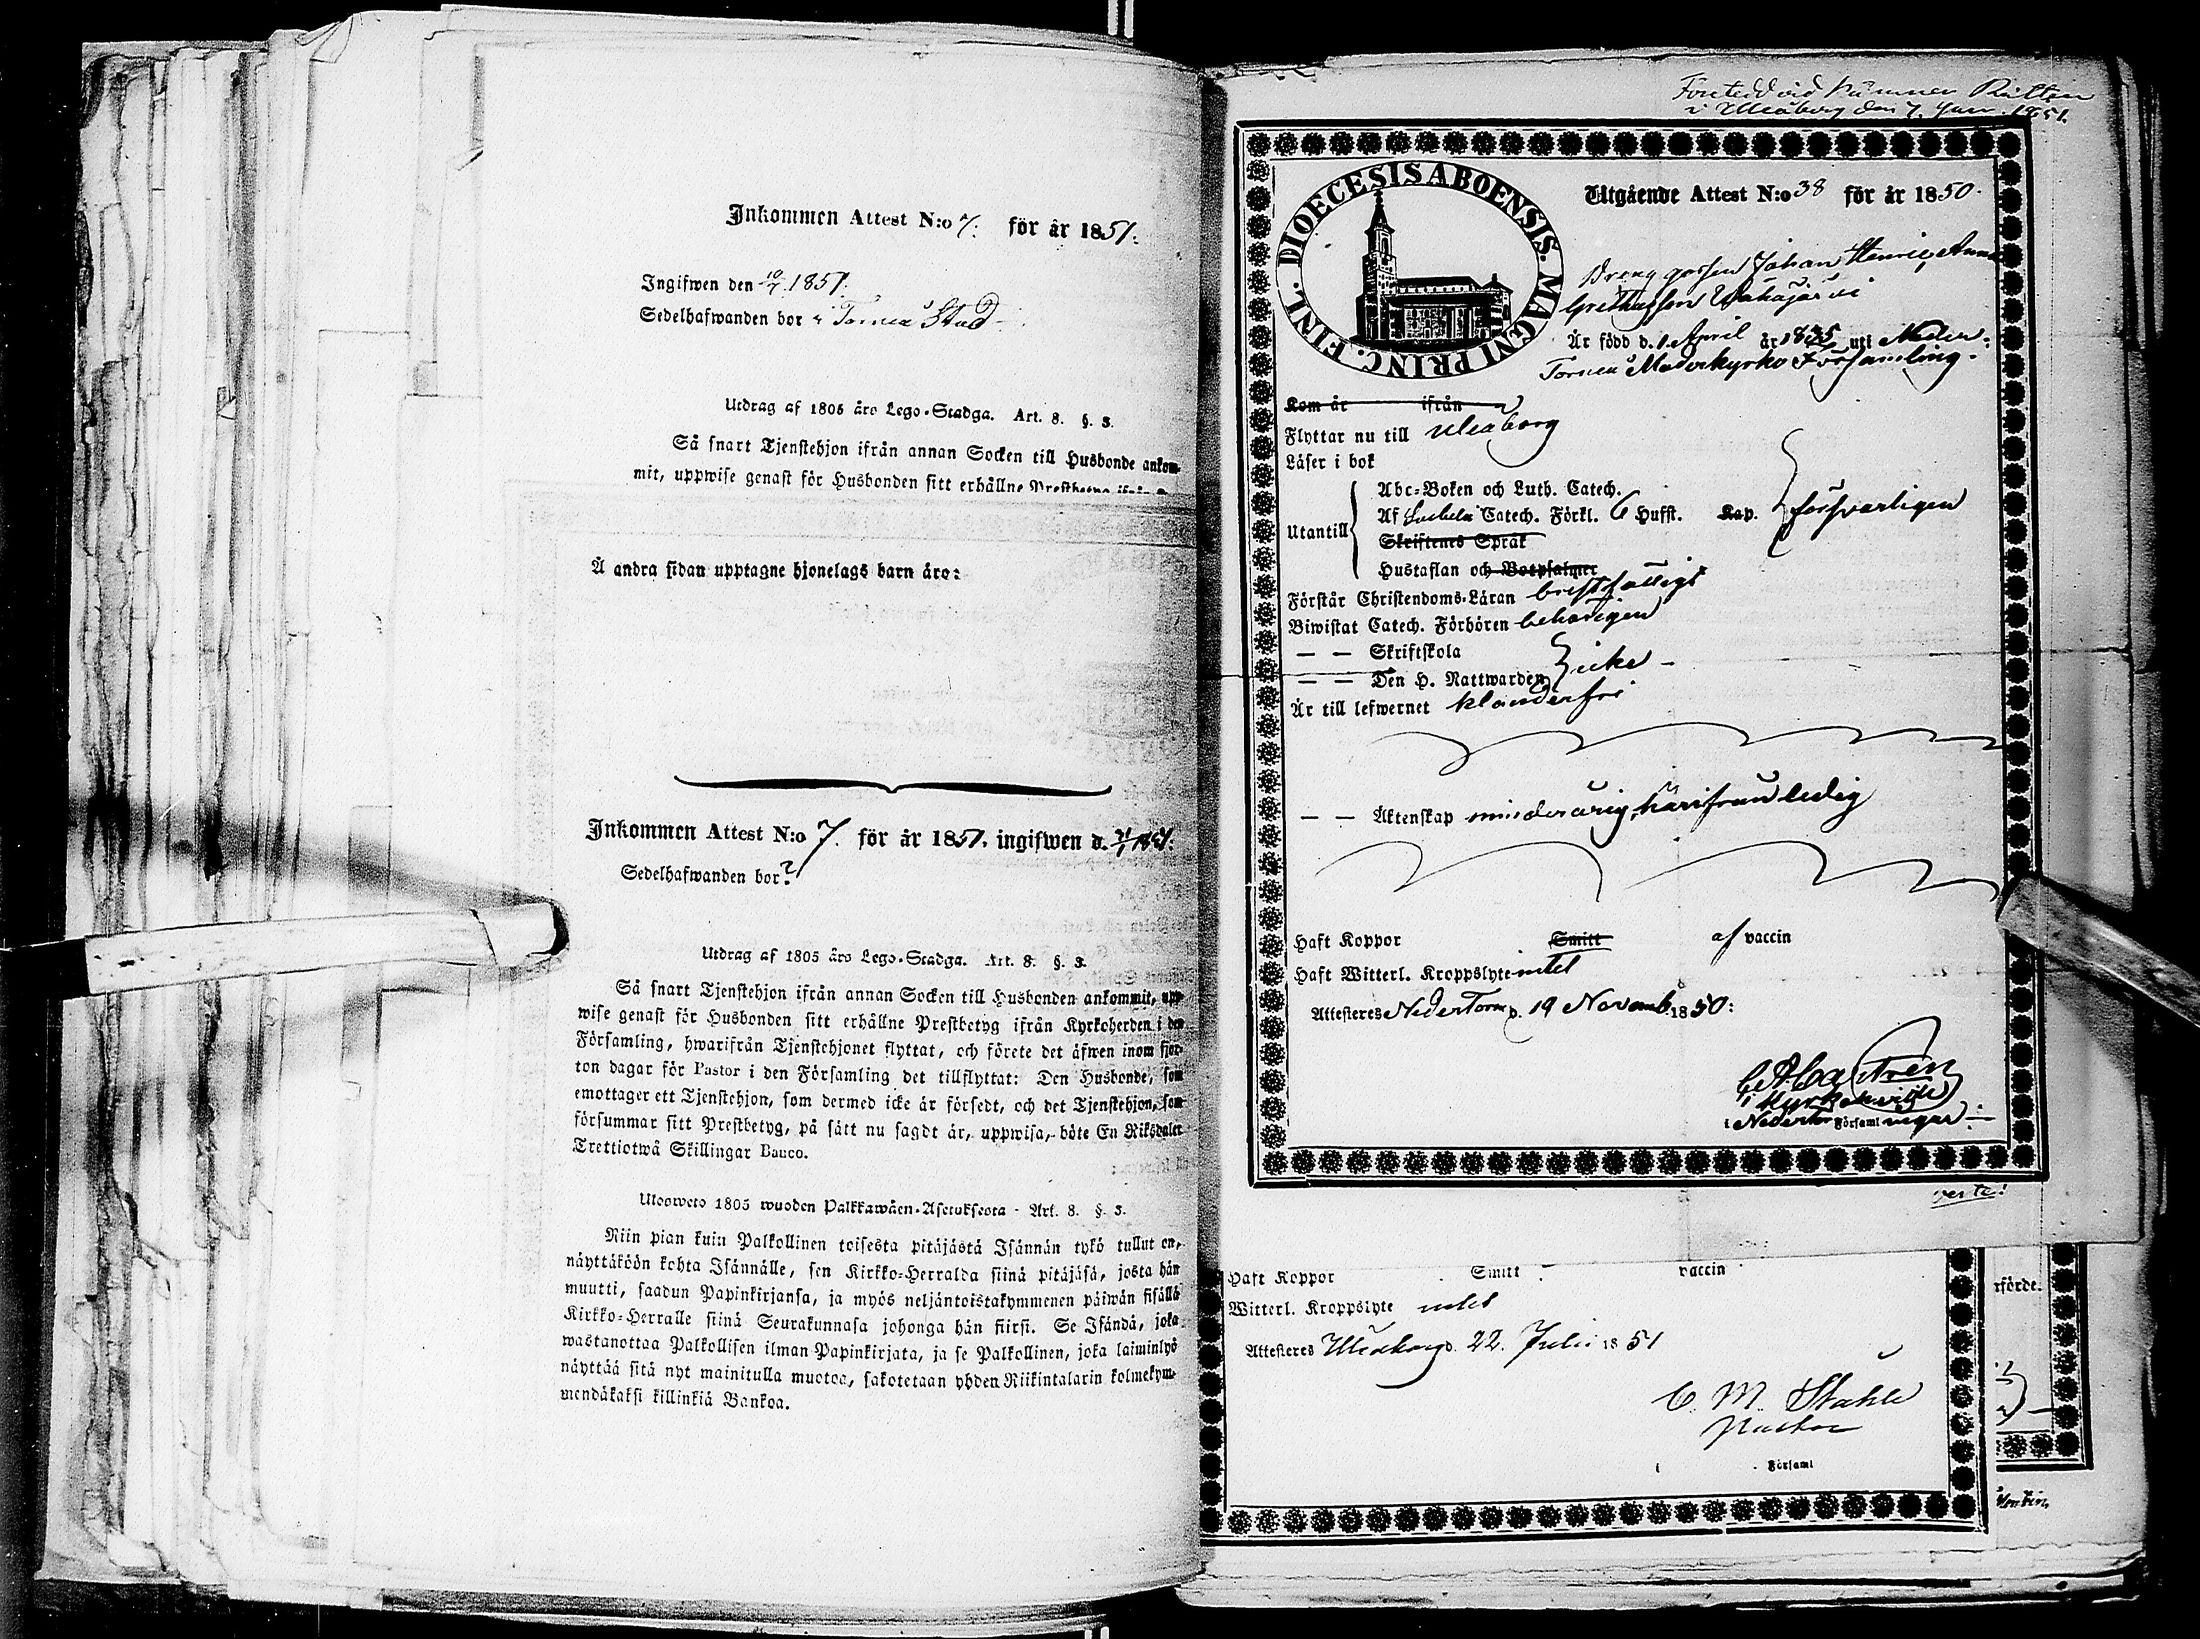 Inkommen Attest N:o 7. för år 1851.
Ingifwen den 10/7. 1851.
Sedelhafwanden bor i Torneå Stad
Utdrag af 1805 års Lego-Stadga. Art. 8. §. 3.
Så snart Tjenstehjon ifrån annan Socken till Husbonde ankom-
mit, uppwise genast för Husbonden sitt erhållne Prestbetyg
Å andra sidan upptagne hjonelags barn äro:
Inkommen Attest N:o 7. för år 1851. ingifwen d. 1851.
Sedelhafwanden bor?
Utdrag af 1805 års Lego-Stadga. Art. 8. §. 3.
Så snart Tjenstehjon ifrån annan Socken till Husbonden ankommit, upp-
wise genast för Husbonden sitt erhållne Prestbetyg ifrån Kyrkoherden i den
Församling, hwarifrån Tjenstehjonet flyttat, och förete det äfwen inom fjor-
ton dagar för Pastor i den Församling det tillflyttat: Den Husbonde, som
emottager ett Tjenstehjon, som dermed icke är försedt, och det Tjenstehjon, som
försummar sitt Prestbetyg, på sätt nu sagdt är, uppwisa, böte En Riksdaler
Trettiotwå Skillingar Banco.
Ulosweto 1805 wuoden Palkkawäen-Asetuksesta - Art. 8. §. 3.
Niin pian kuin Palkollinen toisesta pitäjästä Isännän tykö tullut on,
näyttäköön kohta Isännälle, sen Kirkko-Herralda siinä pitäjäsä, josta hän
muutti, saadun Papinkirjansa, ja myös neljäntoistakymmenen päiwän sisällä
Kirkko-Herralle siinä Seurakunnasa johonga hän siirsi. Se Isändä, joka
wastanottaa Palkollisen ilman Papinkirjata, ja se Palkollinen, joka laiminlyö
näyttää sitä nyt mainitulla muotoa, sakotetaan yhden Riikintalarin kolmekym-
mendäkaksi killinkiä Bankoa.
Företedd vid
i Uleåborg den 7. Jan. 1851.
DIOECESIS ABOENSIS. MAGNI PRINC. FINL.
Utgående Attest N:o 38 för år 1850.
Dreng gossen Johan Henric, Anna
Grethasson
Är född d. 1 April år 1835 uti Neder-
Torneå Moderkyrko Församling.
Kom år ifrån
Flyttar nu till Uleåborg
Läser i bok
Utantill
Abc-Boken och Luth. Catech.
Af Catech. Förkl. 6 Hufst. Kap. försvarligen
Skriftenes Språk
Hustaflan och Botpsalmer
Förstår Christendoms-Läran bristfälligt
Biwistat Catech. Förhören behörigen
— — Skriftskola
— — Den H. Nattwarden icke
Är till lefwernet klanderfri
— — Äktenskap minderårig, härifrån ledig
Haft Koppor Smitt af vaccin
Haft Witterl. Kroppslyte intet
Attesteres NederTorn d. 19 Novemb. 1850.
Castrén
i Nedertor Församl ingar.
verte!
Haft Koppor Smitt vaccin
Witterl. Kroppslyte intet
Attesteres Uleåborg d. 22. Julii 1851
C. M. Stahle
Pastor
i Församl